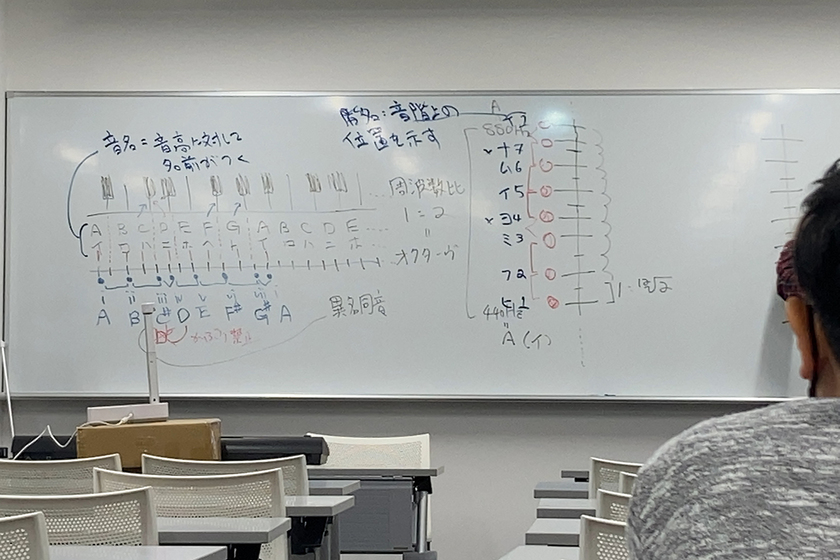 音名=音高に対して
名前がつく
階名:音階上の
位置を示す
周波数比
1=2
=
オクターヴ
A B C D E F G A B C D E ....
イ ロ ハ ニ ホ ヘ ト イ ロ ハ ニ ホ ....
i ii iii iv v vi vii i
A B C# D E F# G# A
異名同度
A
880Hz
ナ7
ム6
イ5
ヨ4
ミ3
フ2
ヒ1
1:12√2
440Hz
=
A(イ)